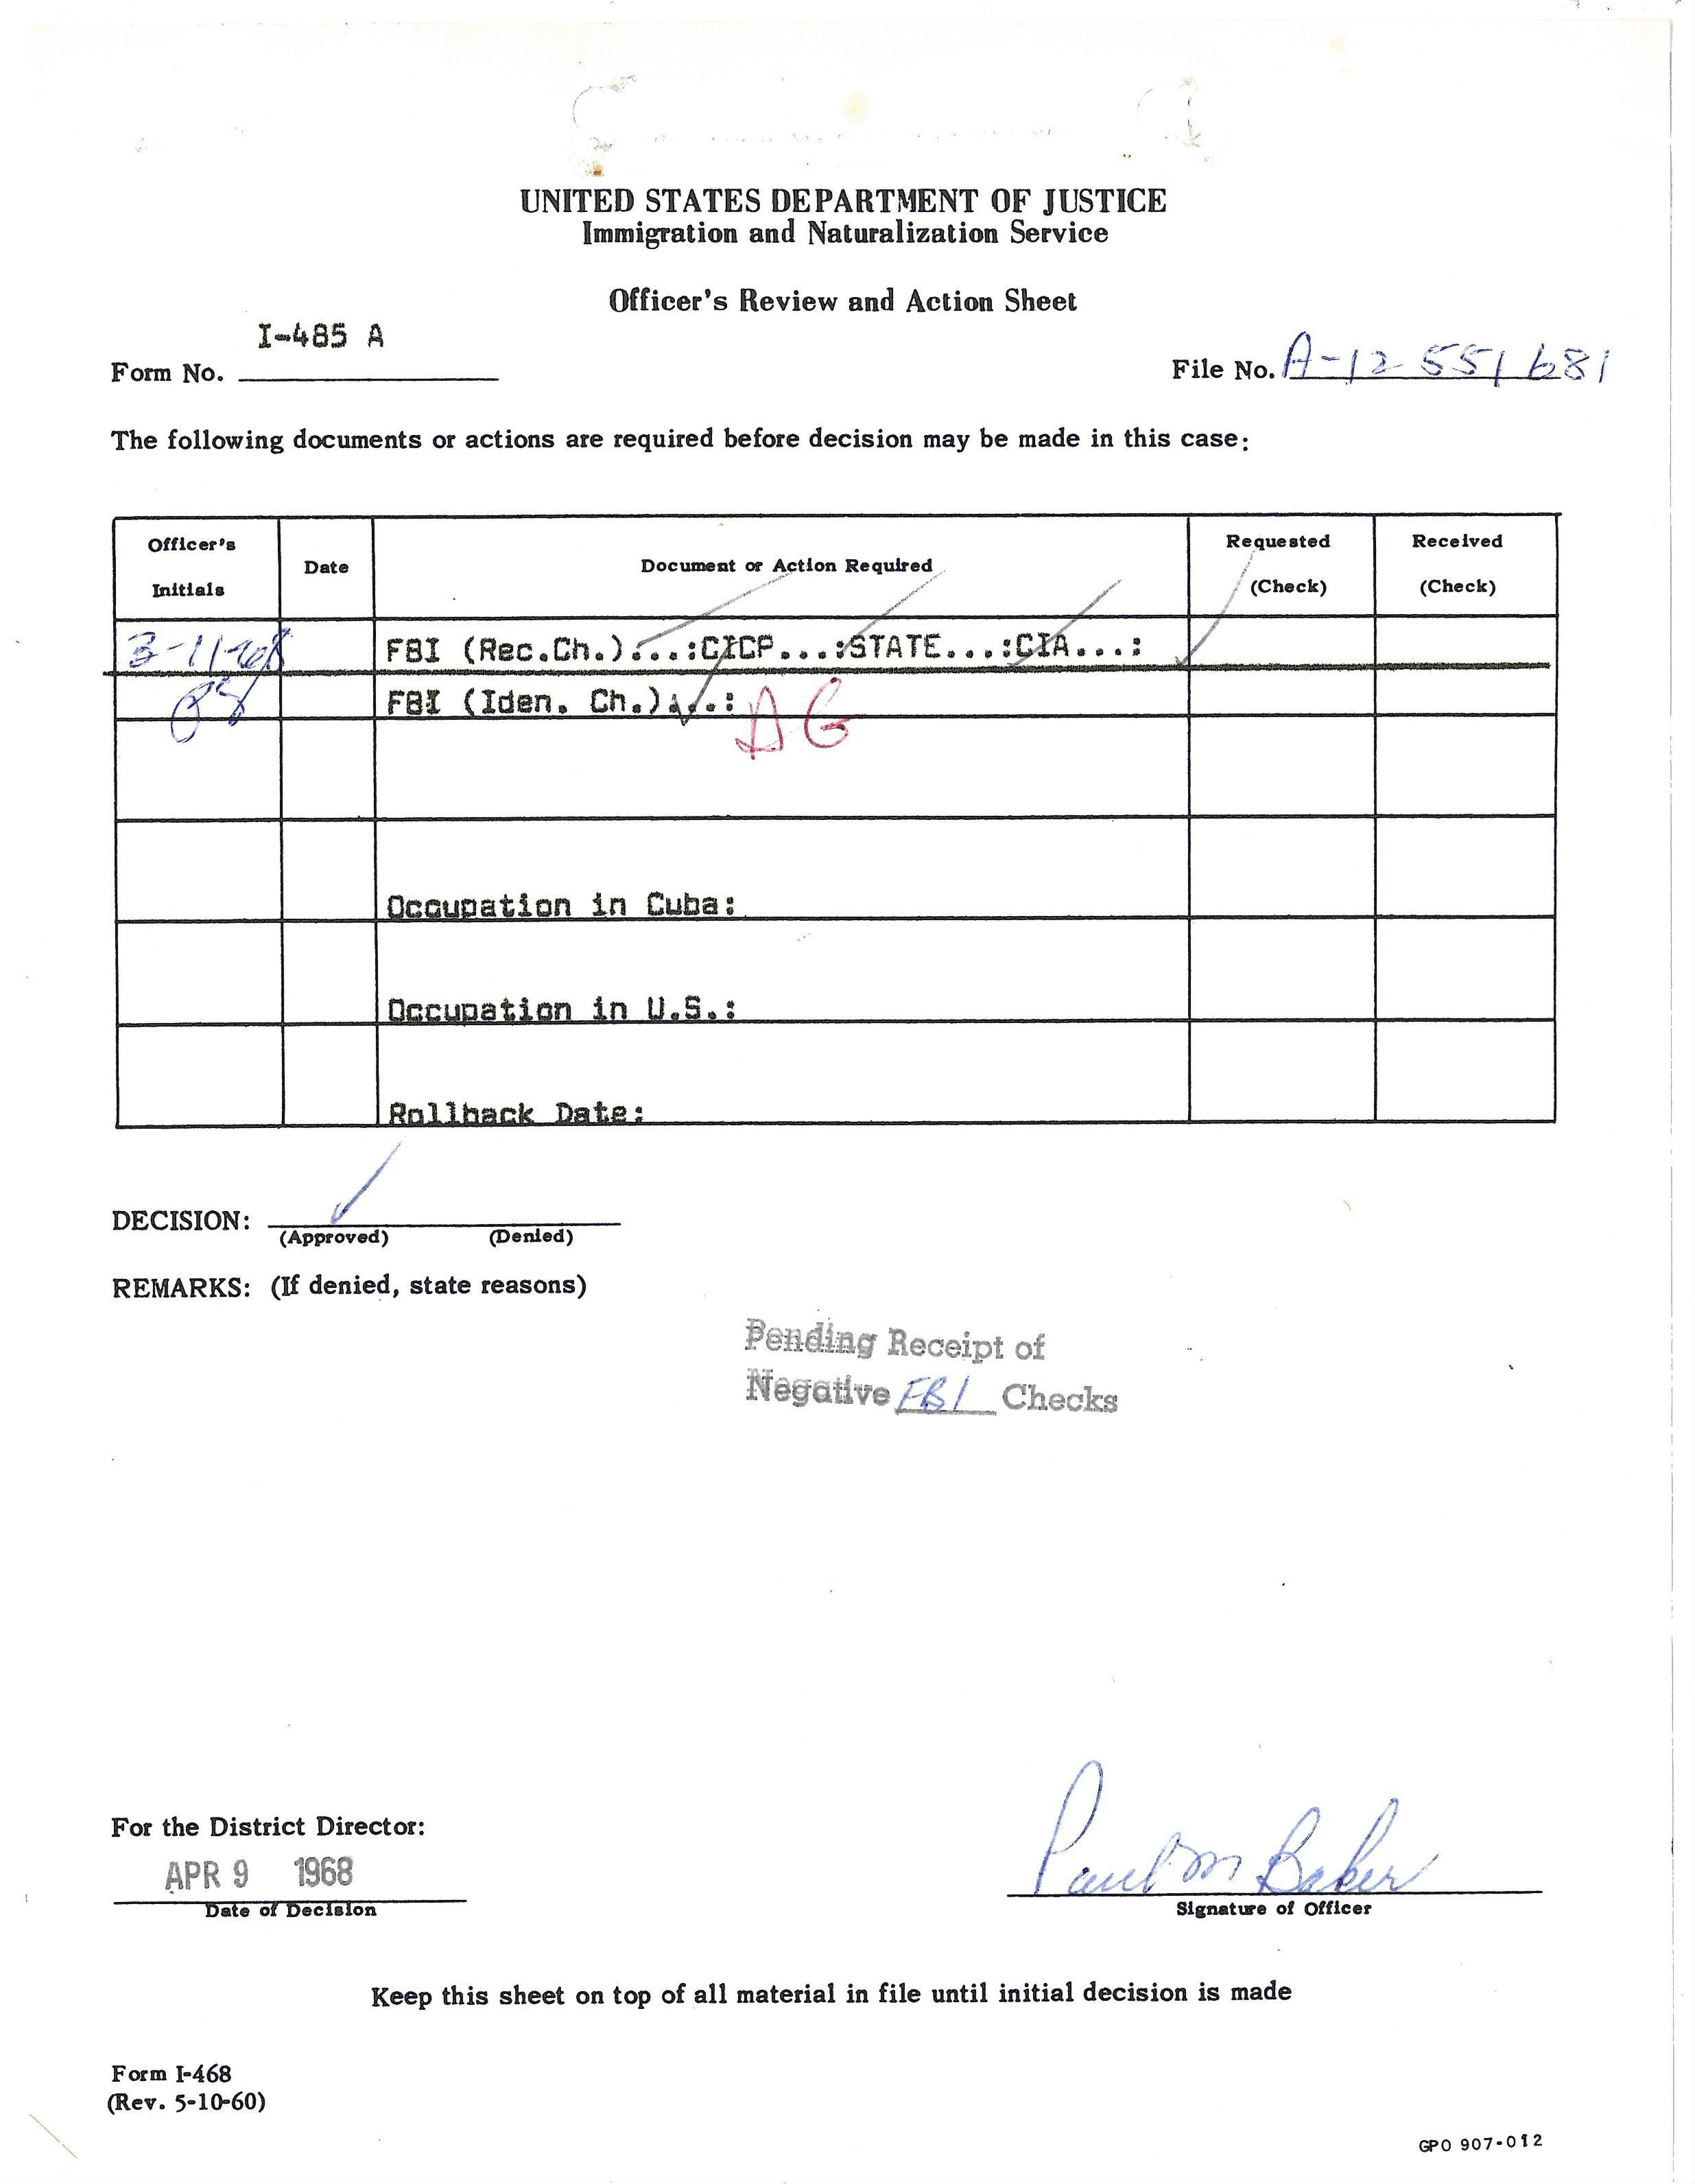 UNITED STATES DEPARTMENT OF JUSTICE
Immigration and Naturalization Service
Officer's Review and Action Sheet
I-485 A
Form No.
File No. A-12 551 681
The following documents or actions are required before decision may be made in this case:
Officer's Initials Date Document or Action Required Requested (Check) Received (Check)
3-11-68 FBI (Rec.Ch.)....:CICP...:STATE...:CIA...:
FBI (Iden. Ch.)...: AG
Occupation in Cuba:
Occupation in U.S.:
Rollback Date:
DECISION:
(Approved) (Denied)
REMARKS: (If denied, state reasons)
Pending Receipt of
Negative FBI Checks
For the District Director:
APR 9 1968
Paul M Baker
Date of Decision
Signature of Officer
Keep this sheet on top of all material in file until initial decision is made
Form I-468
(Rev. 5-10-60)
GPO 907-012